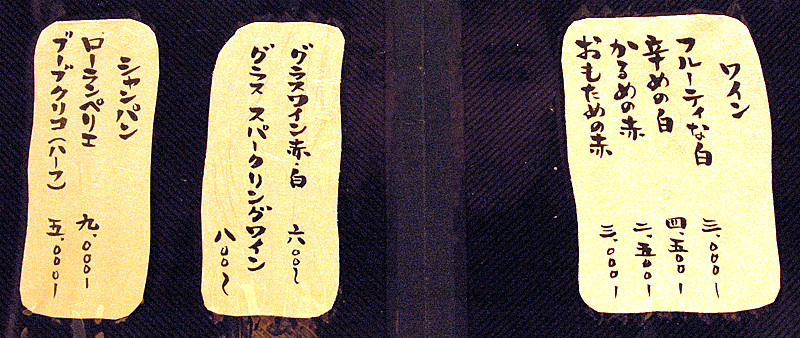 ワイン
フルーティな白 三、〇〇〇ー
辛めの白 四、五〇〇ー
かるめの赤 二、五〇〇ー
おもための赤 三、〇〇〇ー
グラスワイン赤・白 六〇〇〜
グラス スパークリングワイン 八〇〇〜
シャンパン
ローランペリエ 九、〇〇〇ー
ブーブクリコ(ハーフ) 五、〇〇〇ー